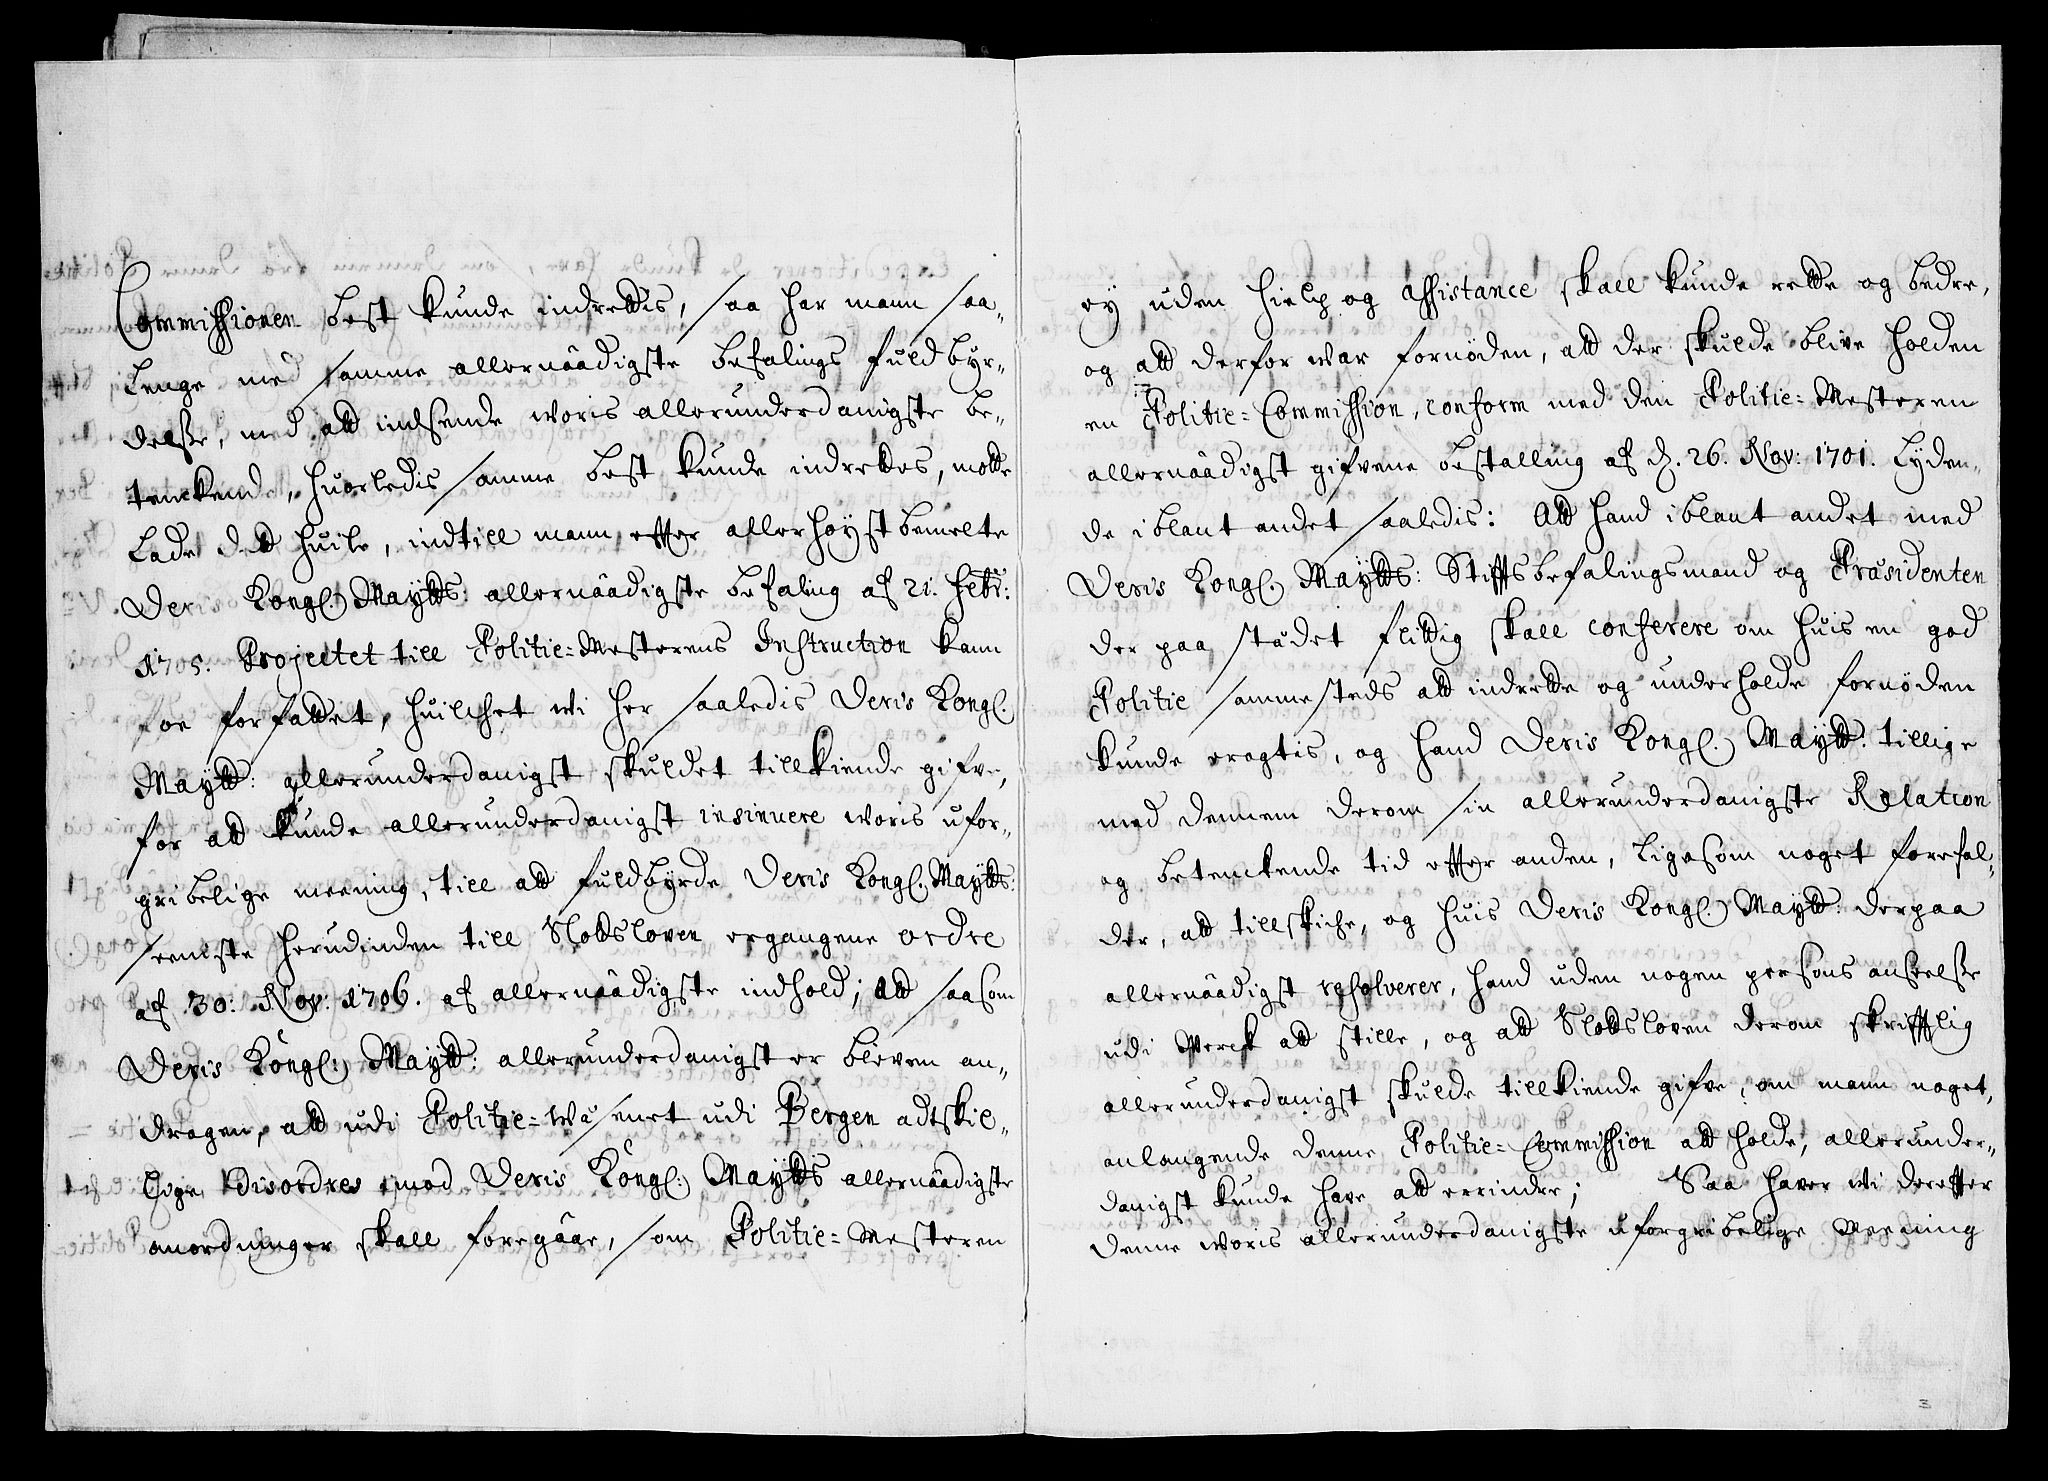 Commissionen best kunde indrettis, saa har mann saa-
lenge med samme allernaadigste befalings fuldbyr-
delsse, med att indsende woris allerunderdanigste be-
tenckende, huorledis samme best kunde indrettes, motte
lade dett huile, indtill mann effter allerhøystbemelte
Deris Kongl. Maytts: allernaadigste befaling af 21. Febr:
1705. Projectet till Politie-Mesterens Instruction kann
foe forfattet, huilchet wi her saaledis Deris Kongl.
Maytt: allerunderdanigst skuldet tillkiende gifve,
for att kunde allerunderdanigst insinuere woris ufor-
gribelige meening, till att fuldbyrde Deris Kongl. Maytts:
seeniste herudinden till Slottsloven ergangene ordre
af 30: Nov: 1706. af allernaadigste indhold; Att saasom
Deris Kongl: Maytt: allerunderdanigst er bleven an-
dragen, att udi Politie-Wæsenet udi Bergen adtskil-
lige Disordres mod Deris Kongl: Maytts allernaadigste
anordninger skall foregaae, som Politie-Mesteren
ey uden hielp og assistance skall kunde rette og bedre,
og att derfor war fornøden, att der skulde blive holden
en Politie-Commission, conform med den Politie-Mesteren
allernaadigst gifvene bestalling af d. 26. Nov: 1701. lyden-
de iblant andet saaledis: Att hand iblant andet med
Deris Kongl. Maytts: Stifftsbefalingsmand og Præsidenten
der paa stædet flittig skall conferere om huis en god
Politie sammesteds att indrette og underholde fornøden
kunde eragtis, og hand Deris Kongl. Maytt: tillige
med dennem derom sin allerunderdanigste Relation
og betenckende tid effter anden, ligesom noget forefal-
der, att tillskiche, og huis Deris Kongl. Maytt: derpaa
allernaadigst resolverer, hand uden nogen persons anseelsse
udi Werck att stille, og att Slottsloven derom skrifftlig
allerunderdanigst skulde tillkiende gifve, om mann noget,
anlangende denne Politie-Commission att holde, allerunder-
danigst kunde have att errindre; Saa haver wi dereffter
denne woris allerunderdanigste uforgribelige Meening
3